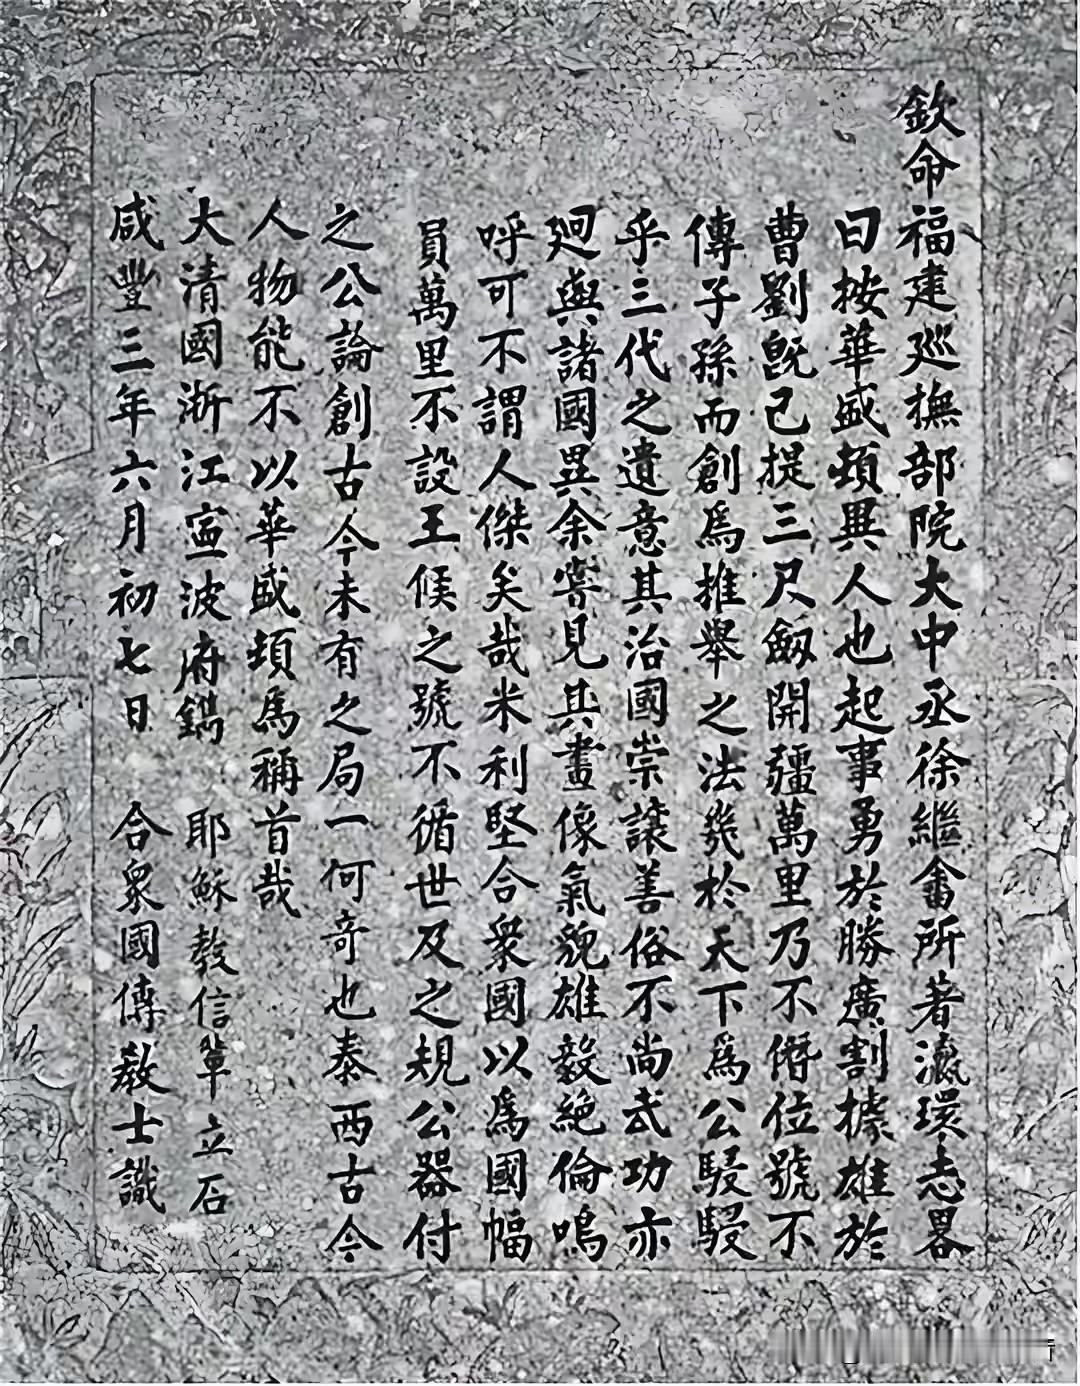 欽命福建廵撫部院大中丞徐繼畬所著瀛環志畧
曰按華盛頓異人也起事勇於勝廣割據雄於
曹劉既已提三尺劔開疆萬里乃不僭位號不
傳子孫而創爲推舉之法幾於天下爲公駸駸
乎三代之遺意其治國崇讓善俗不尚武功亦
廻與諸國異余嘗見其畫像氣貌雄毅絶倫嗚
呼可不謂人傑矣哉米利堅合衆國以爲國幅
員萬里不設王候之號不循世及之規公器付
之公論創古今未有之局一何奇也泰西古今
人物能不以華盛頓爲稱首哉
大清國浙江寧波府鐫 耶穌教信輩立石
咸豐三年六月初七日 合衆國傳教士識